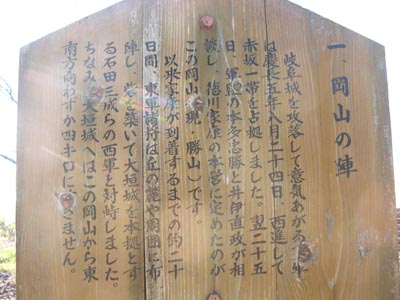 一、岡山の陣
岐阜城を攻落して意気あがる
は慶長五年八月二十四日、西進して
赤坂一帯を占拠しました。翌二十五
日、軍監の本多忠勝と井伊直政が相
談し、徳川家康の本営に定めたのが
この岡山(現・勝山)です。
以来家康が到着するまでの約二十
日間、東軍諸将は丘の麓や周囲に布
陣し、砦を築いて大垣城を本拠とす
る石田三成らの西軍と対峙しました。
ちなみに大垣城へはこの岡山から東
南方向わずか四キロに
ません。